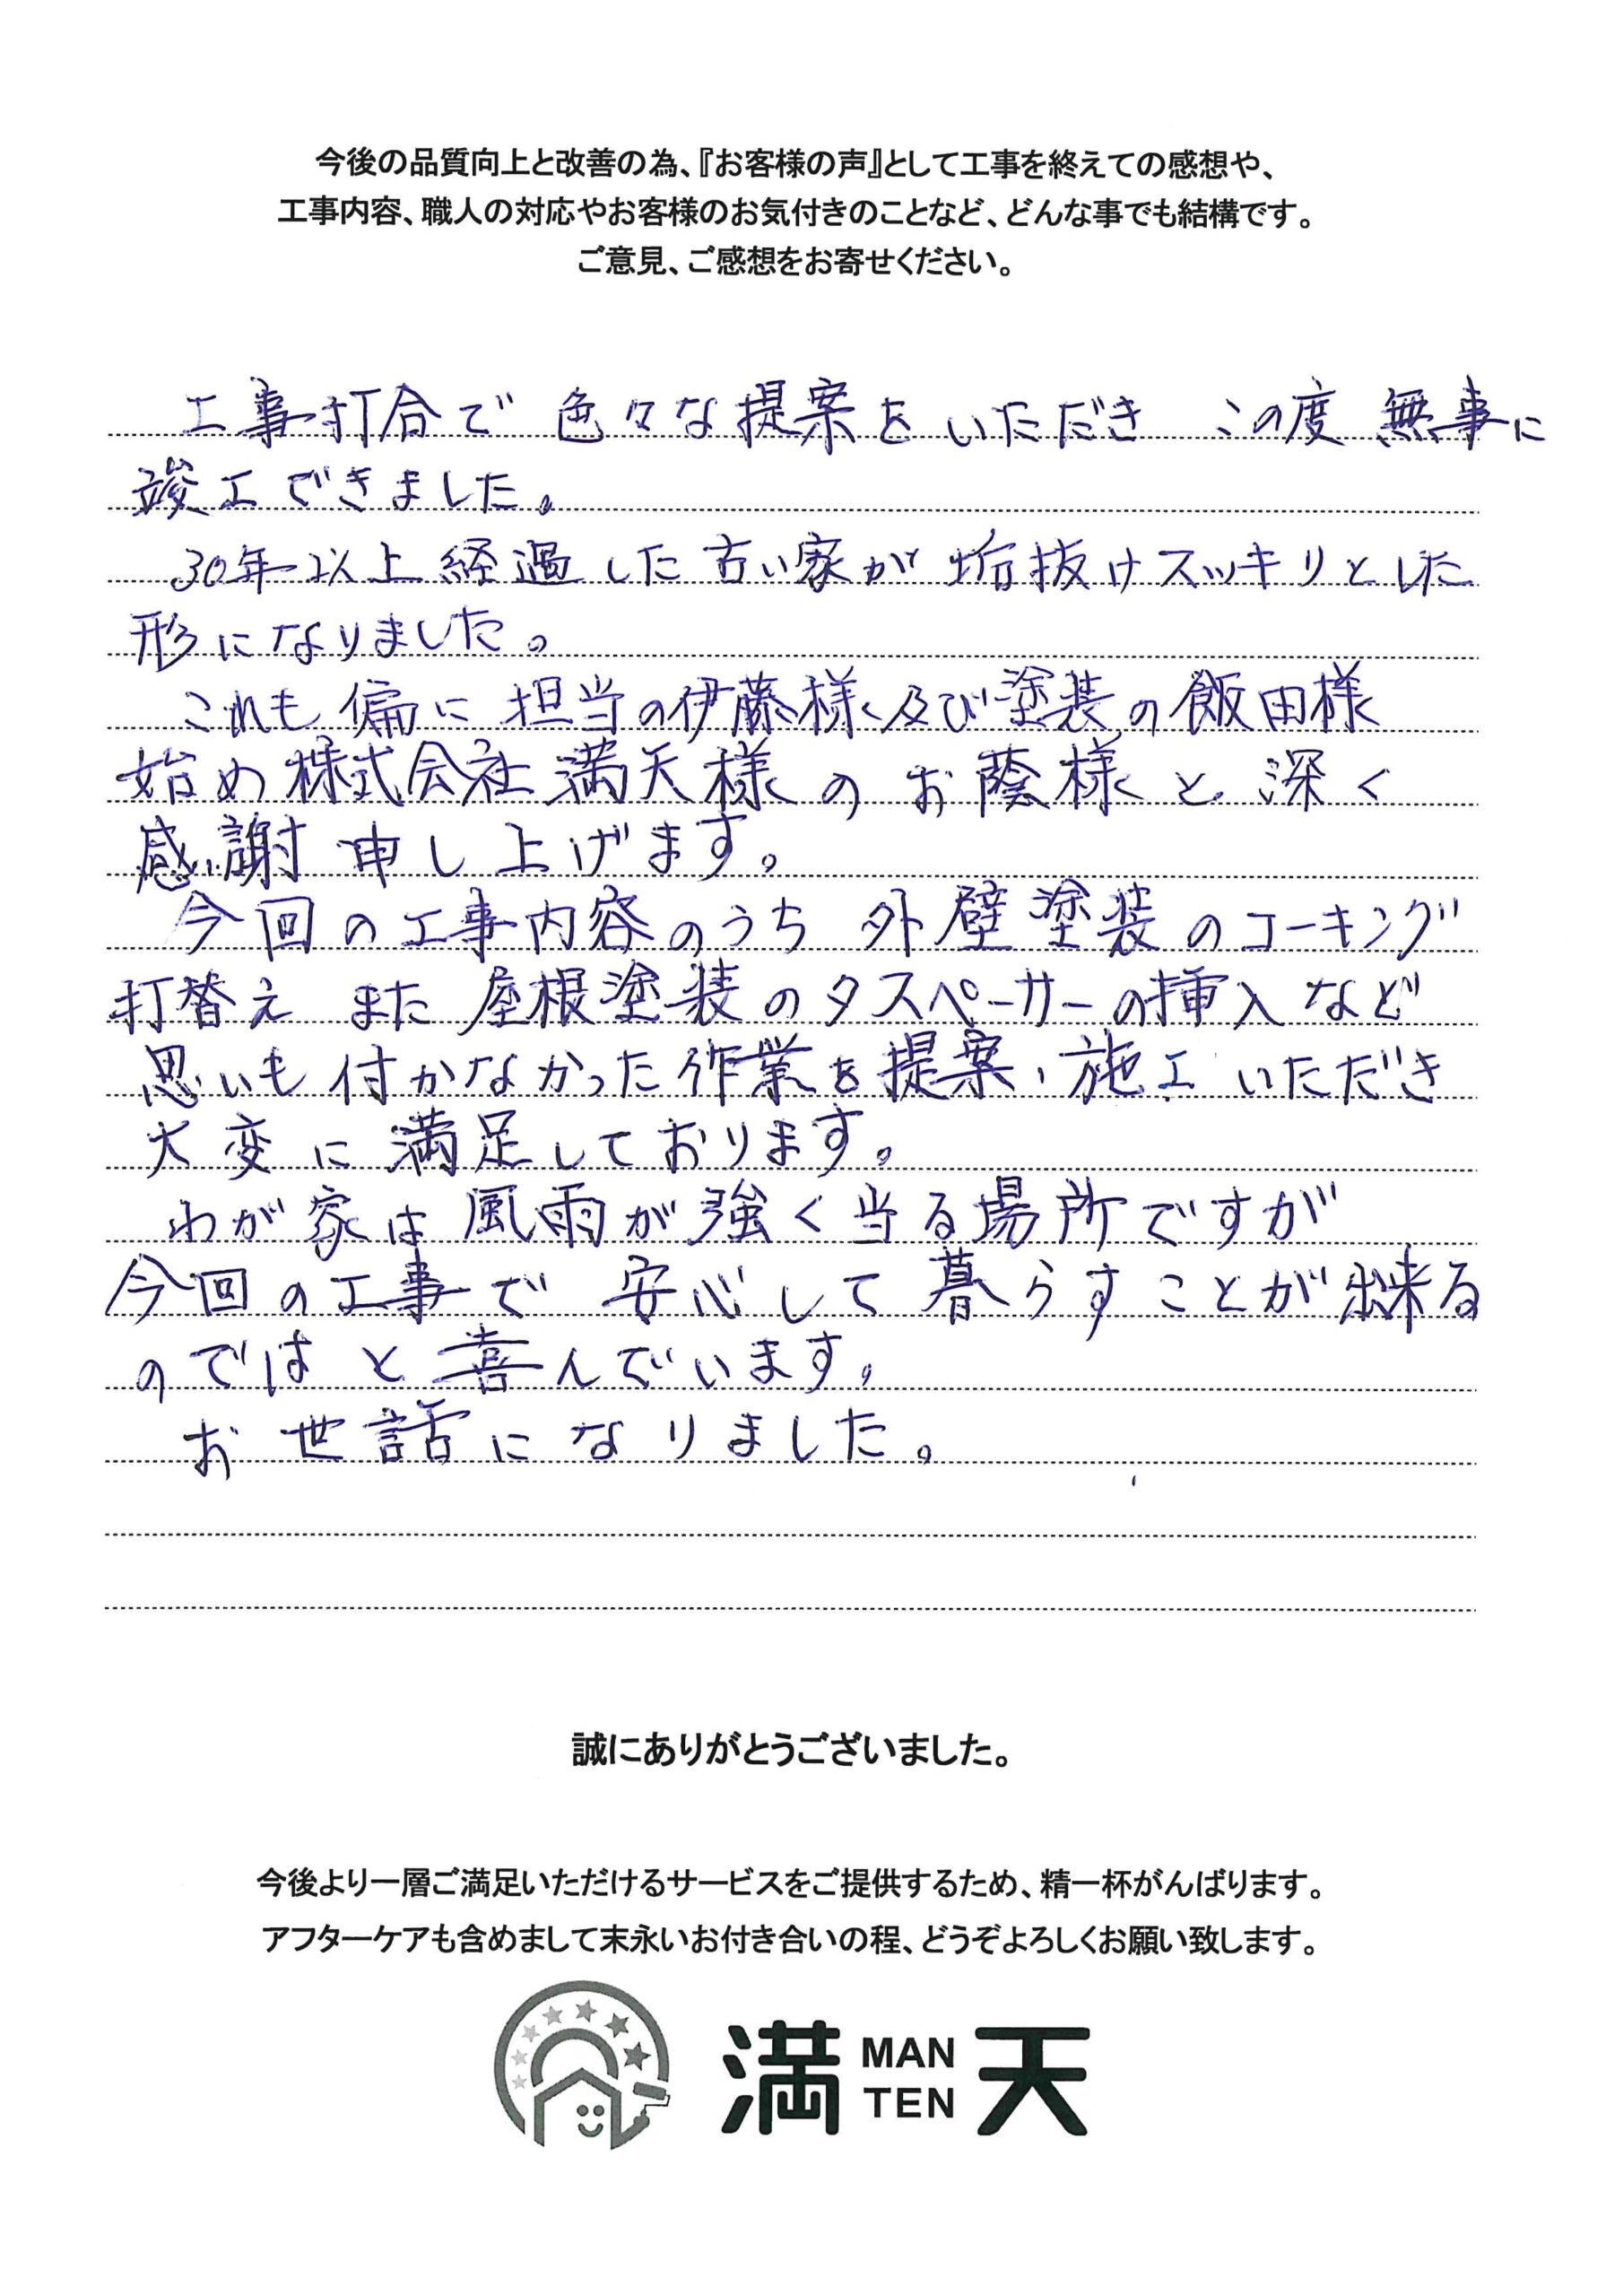 今後の品質向上と改善の為、『お客様の声』として工事を終えての感想や、
工事内容、職人の対応やお客様のお気付きのことなど、どんな事でも結構です。
ご意見、ご感想をお寄せください。
工事打合で 色々な提案を いただき この度 無事に
竣工できました。
30年以上経過した古い家が 垢抜けスッキリとした
形になりました。
これも偏に 担当の伊藤様及び塗装の飯田様
始め 株式会社満天様の お蔭様と深く
感謝申し上げます。
今回の工事内容のうち 外壁塗装のコーキング
打替え また 屋根塗装のタスペーサーの挿入など
思いも付かなかった作業を提案、施工いただき
大変に満足しております。
わが家は風雨が強く当る場所ですが
今回の工事で 安心して暮らすことが出来る
のではと喜んでいます。
お世話になりました。
誠にありがとうございました。
今後より一層ご満足いただけるサービスをご提供するため、精一杯がんばります。
アフターケアも含めまして末永いお付き合いの程、どうぞよろしくお願い致します。
満 MAN TEN 天